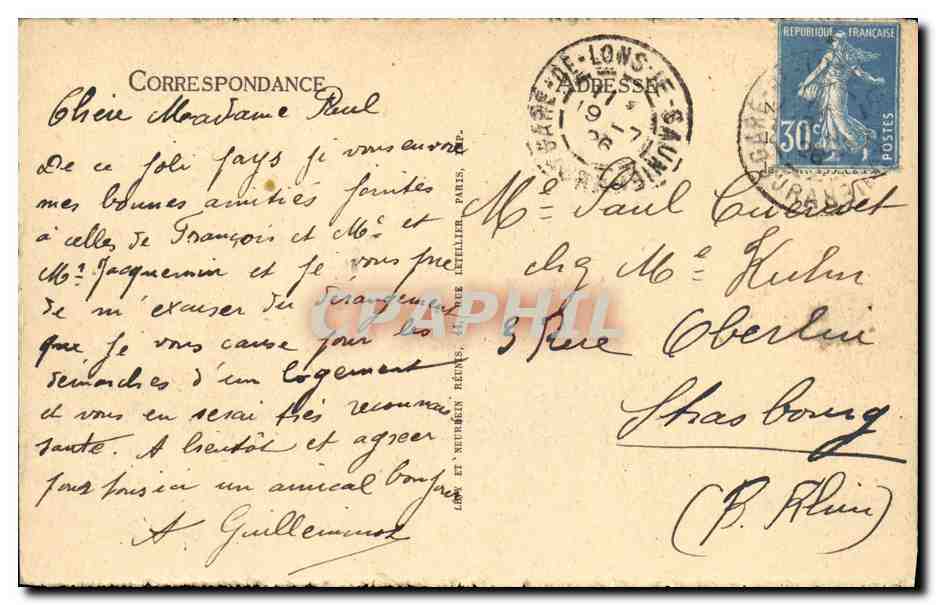 CORRESPONDANCE
ADRESSE
Chère Madame Paul
De ce joli pays je vous envoie
mes bonnes amitiés jointes
à celles de François et Me et
Mr Jacquemin et je vous prie
de m'excuser du dérangement
que je vous cause pour les
démarches d'un logement
et vous en serai très reconnais
sante. A bientôt et agreer
pour un amical bonjour
A Guilleminot
LEVY ET NEURDEIN RÉUNIS, 44, RUE LETELLIER, PARIS, IMP.
GARE-DE-LONS-LE-SAUNIER
19
-7
26
REPUBLIQUE FRANÇAISE
30c
POSTES
GARE
JURA
Me Paul
chez Me Kuhn
3 Rue Oberlin
Strasbourg
(B. Rhin)
CPAPHIL